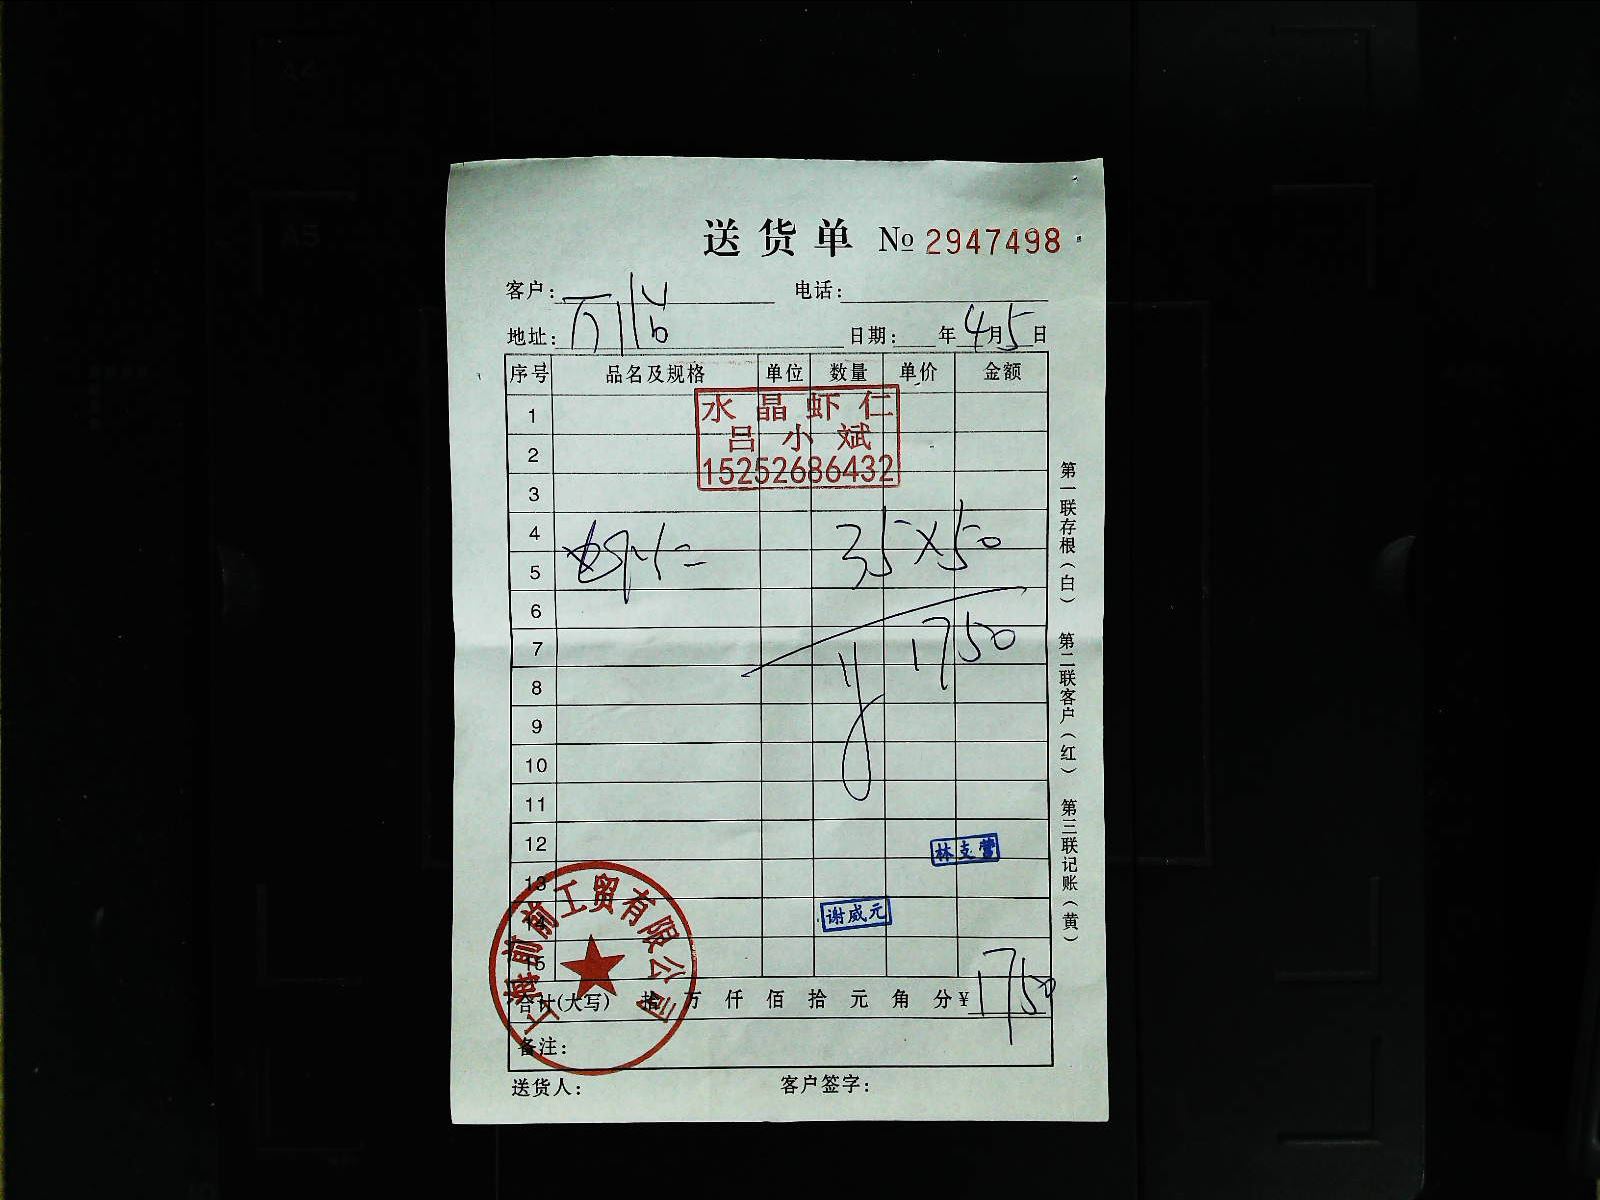 送货单 № 2947498
客户: 电话:
地址: 日期: 年4月5日
序号 品名及规格 单位 数量 单价 金额
水晶虾仁
吕小斌
15252686432
1
2
3
4
5
虾仁 35×50
6
7
1750
8
9
10
11
12
林支营
13
14
谢威元
15
上海前前工贸有限公司
合计(大写) 拾 万 仟 佰 拾 元 角 分 ¥1750
备注:
送货人: 客户签字:
第一联存根(白) 第二联客户(红) 第三联记账(黄)